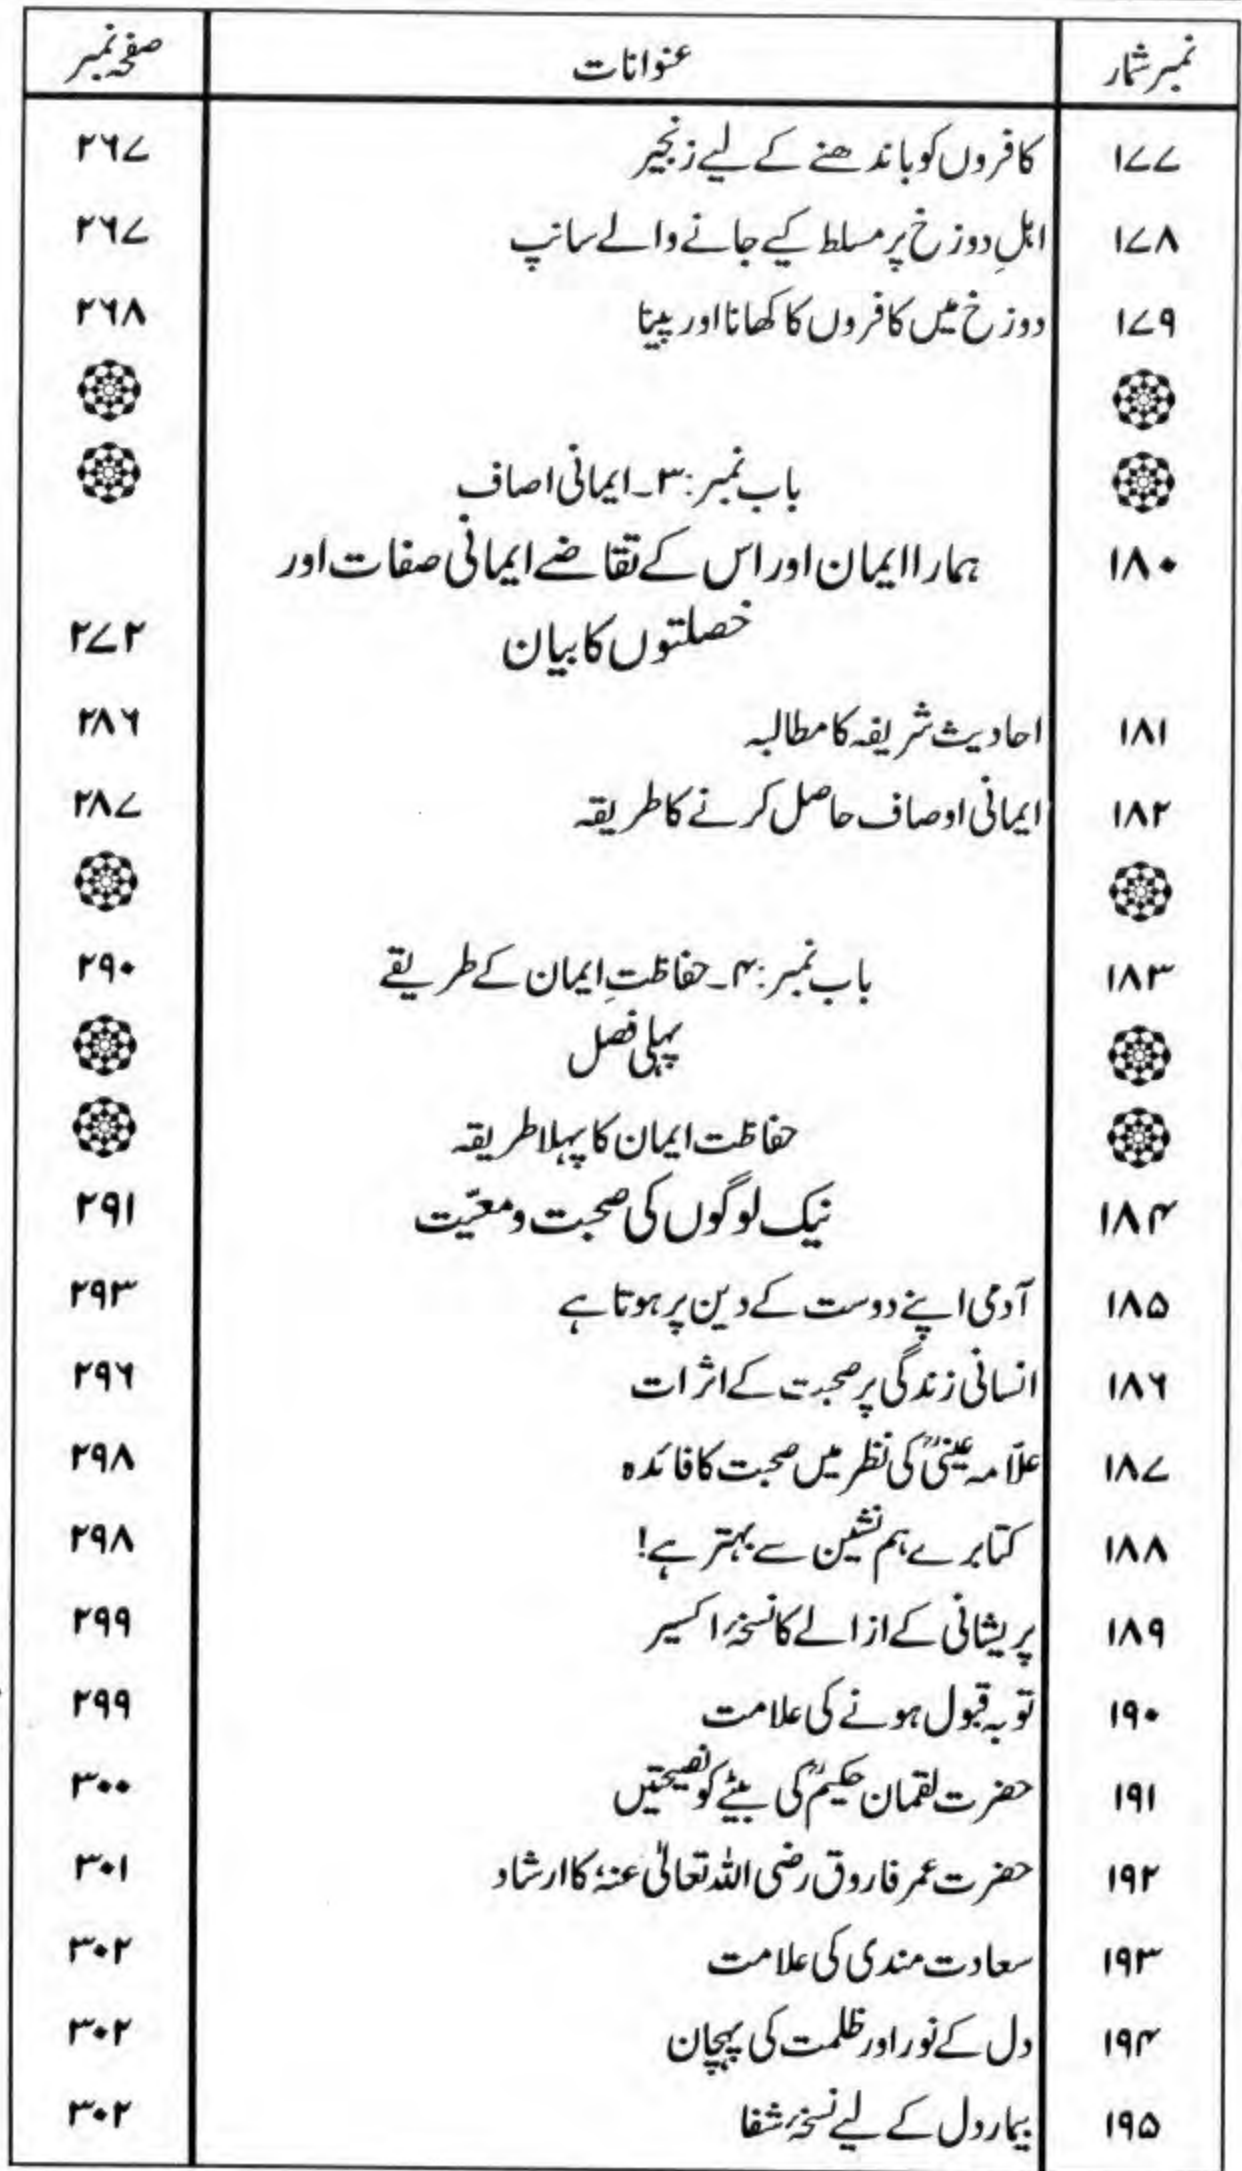 نمبر شمار عنوانات صفحہ نمبر
۱۷۷ کافروں کو باندھنے کے لیے زنجیر ۲۶۷
۱۷۸ اہلِ دوزخ پر مسلط کیے جانے والے سانپ ۲۶۷
۱۷۹ دوزخ میں کافروں کا کھانا اور پینا ۲۶۸
باب نمبر: ۳۔ ایمانی اصاف
۱۸۰ ہمارا ایمان اور اس کے تقاضے ایمانی صفات اور
خصلتوں کا بیان ۲۷۲
۱۸۱ احادیث شریفہ کا مطالبہ ۲۸۶
۱۸۲ ایمانی اوصاف حاصل کرنے کا طریقہ ۲۸۷
۱۸۳ باب نمبر: ۴۔ حفاظتِ ایمان کے طریقے ۲۹۰
پہلی فصل
حفاظت ایمان کا پہلا طریقہ
۱۸۴ نیک لوگوں کی صحبت و معیّت ۲۹۱
۱۸۵ آدمی اپنے دوست کے دین پر ہوتا ہے ۲۹۳
۱۸۶ انسانی زندگی پر صحبت کے اثرات ۲۹۶
۱۸۷ علّامہ عینیؒ کی نظر میں صحبت کا فائدہ ۲۹۸
۱۸۸ کتا برے ہم نشین سے بہتر ہے! ۲۹۸
۱۸۹ پریشانی کے ازالے کا نسخۂ اکسیر ۲۹۹
۱۹۰ توبہ قبول ہونے کی علامت ۲۹۹
۱۹۱ حضرت لقمان حکیمؒ کی بیٹے کو نصیحتیں ۳۰۰
۱۹۲ حضرت عمر فاروق رضی اللہ تعالٰی عنہٗ کا ارشاد ۳۰۱
۱۹۳ سعادت مندی کی علامت ۳۰۲
۱۹۴ دل کے نور اور ظلمت کی پہچان ۳۰۲
۱۹۵ بیمار دل کے لیے نسخۂ شفا ۳۰۲